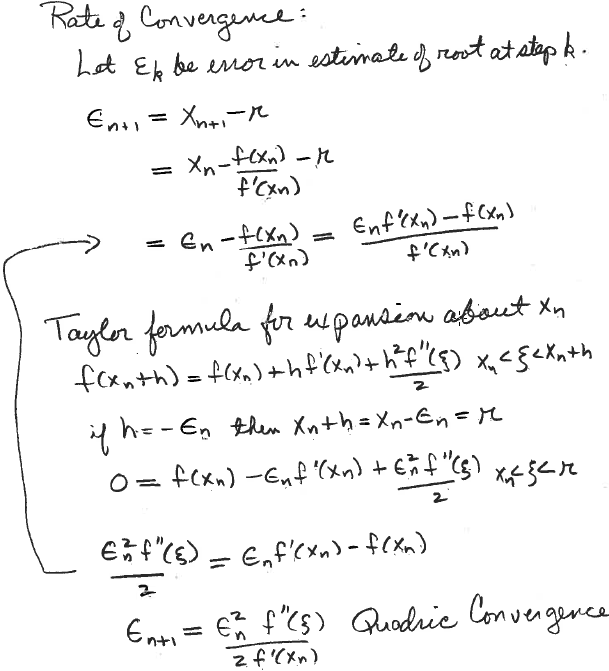 Rate of Convergence:
Let εk be error in estimate of root at step k.
ϵn+1 = xn+1 - r
= xn - f(xn)/f'(xn) - r
= ϵn - f(xn)/f'(xn) = (ϵn f'(xn) - f(xn))/f'(xn)
Taylor formula for expansion about xn
f(xn+h) = f(xn) + h f'(xn) + h² f''(ξ)/2 xn < ξ < xn+h
if h = -ϵn then xn+h = xn - ϵn = r
0 = f(xn) - ϵn f'(xn) + ϵn² f''(ξ)/2 xn < ξ < r
ϵn² f''(ξ)/2 = ϵn f'(xn) - f(xn)
ϵn+1 = ϵn² f''(ξ)/2 f'(xn) Quadric Convergence